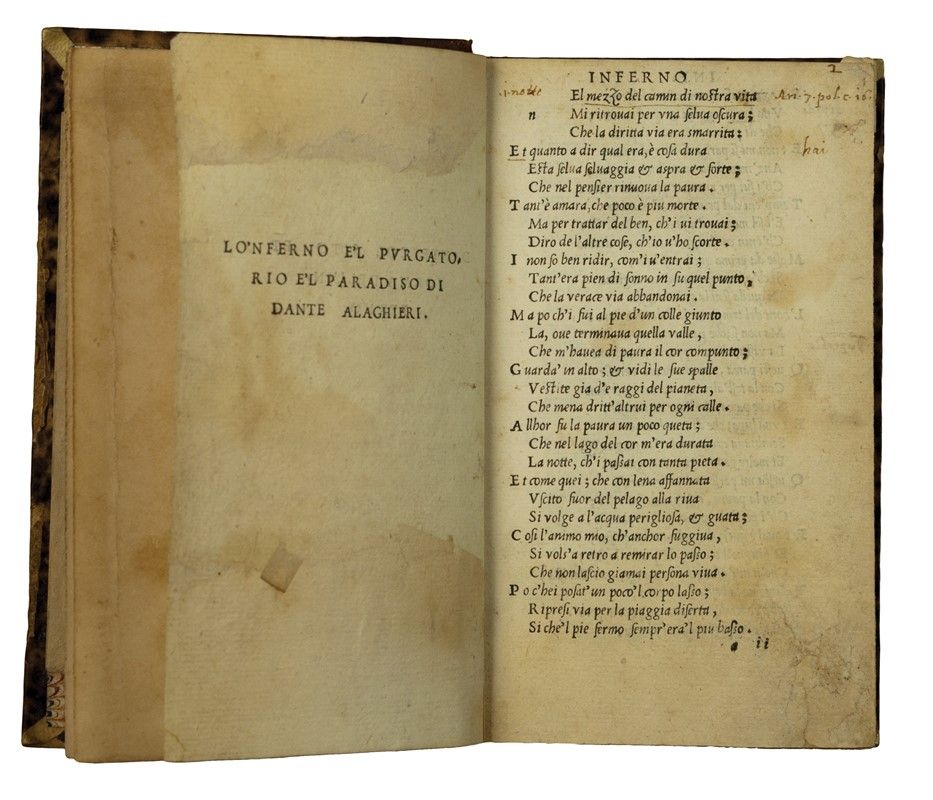 LO'NFERNO E'L PVRGATO,
RIO E'L PARADISO DI
DANTE ALAGHIERI.
2
INFERNO
notte
El mezzo del camin di nostra vita
Ari. 7. pol. c. 16.
n Mi ritrouai per vna selua oscura;
Che la diritta via era smarrita:
Et quanto a dir qual era, è cosa dura
hai
Esta selua seluaggia & aspra & forte;
Che nel pensier rinuoua la paura.
Tant'è amara, che poco è piu morte.
Ma per trattar del ben, ch'i ui trouai;
Diro de l'altre cose, ch'io u'ho scorte.
I non so ben ridir, com'i u'entrai;
Tant'era pien di sonno in su quel punto,
Che la verace via abbandonai.
Ma po ch'i fui al pie d'un colle giunto
La, oue terminaua quella valle,
Che m'hauea di paura il cor compunto;
Guarda' in alto; & vidi le sue spalle
Vestite gia d'e raggi del pianeta,
Che mena dritt'altrui per ogni calle.
Allhor fu la paura un poco queta;
Che nel lago del cor m'era durata
La notte, ch'i passai con tanta pieta.
Et come quei; che con lena affannata
Vscito fuor del pelago alla riua
Si volge a l'acqua perigliosa, & guata;
Cosi l'animo mio, ch'anchor fuggiua,
Si vols'a retro a remirar lo passo;
Che non lascio giamai persona viua.
Po c'hei posat'un poco'l corpo lasso;
Ripresi via per la piaggia diserta,
Si che'l pie fermo sempr'era'l piu basso.
a ii